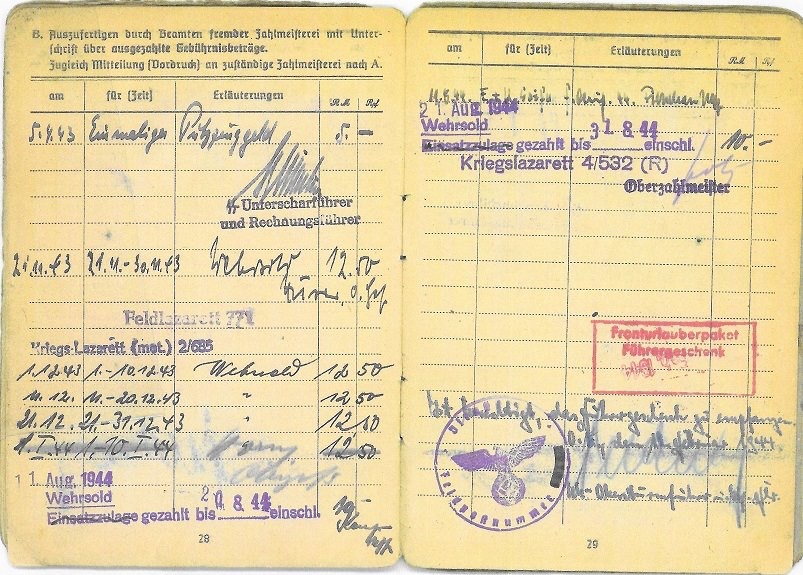 B. Auszufertigen durch Beamten fremder Zahlmeisterei mit Unter-
schrift über ausgezahlte Gebührnisbeträge.
Zugleich Mitteilung (Vordruck) an zuständige Zahlmeisterei nach A.
am für (Zeit) Erläuterungen RM Rpf
5.7.43 Einmaliges Putzzeuggeld 5. —
SS-Unterscharführer
und Rechnungsführer
21.11.43 21.11.-30.11.43 Wehrsold 12.50
Feldlazarett 771
Kriegs-Lazarett (mot.) 2/685
1.12.43 1.-10.12.43 Wehrsold 12 50
11.12. 11.-20.12.43 " 12 50
21.12. 21.-31.12.43 " 12 50
1.I.44 1.-10.I.44 12 50
11. Aug. 1944
Wehrsold
Einsatzzulage gezahlt bis 20.8.44 einschl.
28
am für (Zeit) Erläuterungen RM Rpf
21. Aug. 1944
Wehrsold
Einsatzzulage gezahlt bis 31.8.44 einschl. 10.-
Kriegslazarett 4/532 (R)
Oberzahlmeister
Fronturlauberpaket
Führergeschenk
Ist berechtigt, das Führergeschenk zu empfangen
1944
Dienststelle
Feldpostnummer
29